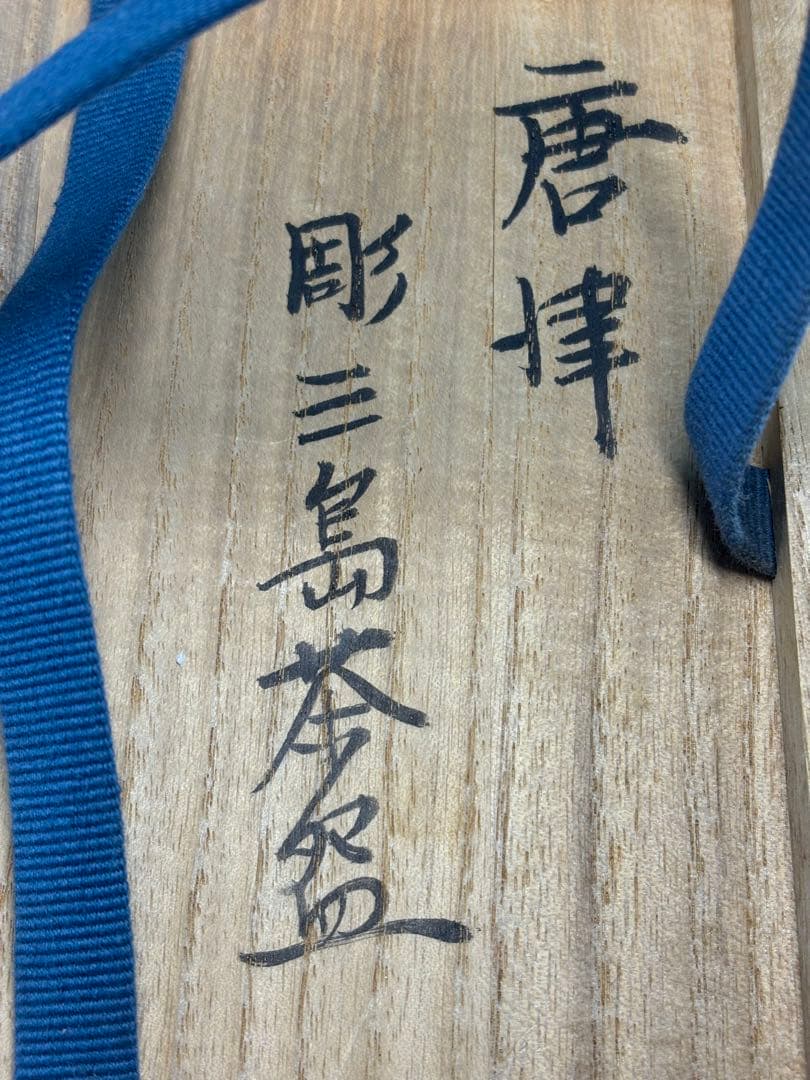 唐津
彫三島茶盌